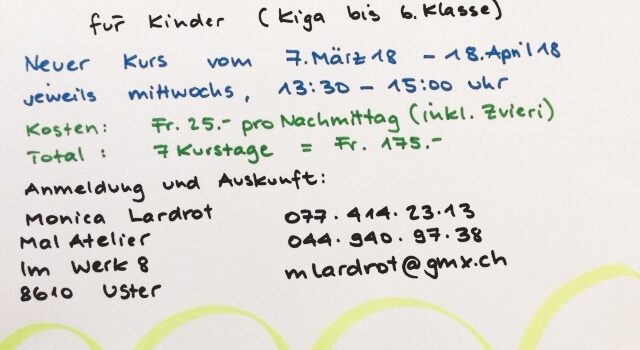 für Kinder (Kiga bis 6. Klasse)
Neuer Kurs vom 7. März 18 – 18. April 18
jeweils mittwochs, 13:30 – 15:00 uhr
Kosten: Fr. 25.- pro Nachmittag (inkl. Zvieri)
Total: 7 Kurstage = Fr. 175.-
Anmeldung und Auskunft:
Monica Lardrot 077. 414. 23.13
Mal Atelier 044. 940. 97. 38
Im Werk 8 mlardrot@gmx.ch
8610 Uster